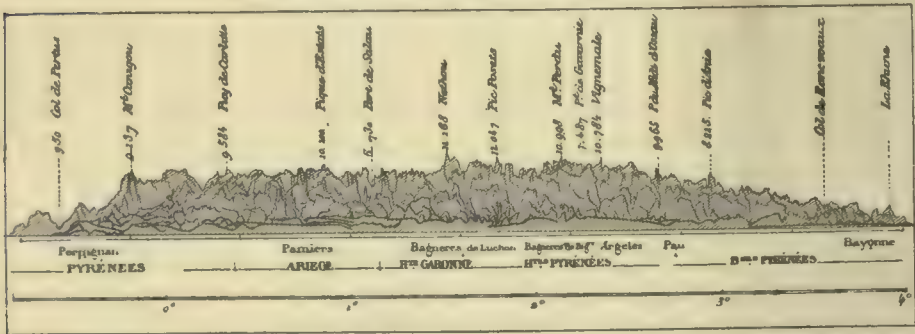 950 Col de Pertus
9.137 Mt Canigou
9.584 Puy de Carlitte
10.200 Pique d'Estats
730 Port de Salau
11.168 Nethou
Pic Posets
10.998 Mt Perdu
7.487 Pt de Gavarnie
10.784 Vignemale
P. du Midi d'Ossau
8.215 Pic d'Anie
Col de Roncevaux
La Rhune
Perpignan Pamiers Bagneres de Luchon Bagneres de Big. Argeles Pau Bayonne
PYRÉNÉES ARIEGE Hte GARONNE Htes PYRÉNÉES Bses PYRÉNÉES
0° 1° 2° 3° 4°